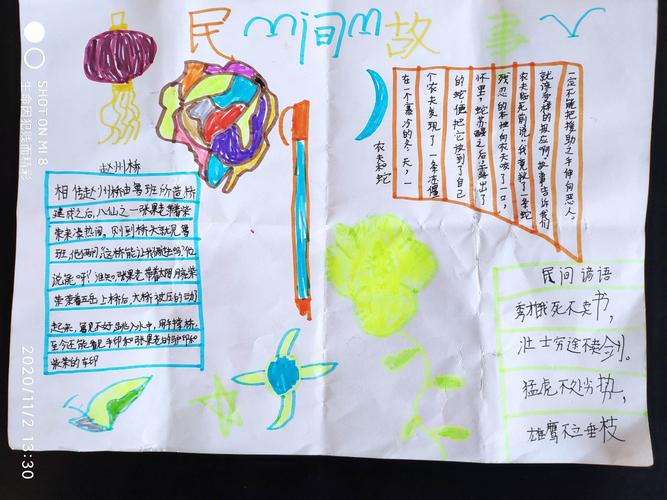 民间故事
赵州桥
相传赵州桥由鲁班所造,桥
建成之后,八仙之一张果老带着柴
荣来凑热闹。刚到桥头就见鲁
班,他俩问"这桥能让我俩过吗?"他
说能"呀!谁知,张果老带着太阳月亮柴
荣带着五岳上桥后,大桥被压的动
起来,鲁见不好跳入水中,用手撑桥,
至今还能看见手印和张果老的驴印和
柴荣的车印
农夫和蛇
在一个寒冷的冬天,一
个农夫发现了一条冻僵
的蛇便把它快到了自己
怀里,蛇苏醒之后露出了
残忍的本性向农夫咬了一口,
农夫临死前说:我竟救了一条蛇
就该多样的报应啊!故事告诉我们
一定不能把援助之手伸向恶人。
民间谚语
秀才饿死不卖书,
壮士穷途不卖剑。
猛虎不处劣势,
雄鹰不立垂枝
SHOT ON MI 8
2020/11/2 13:30